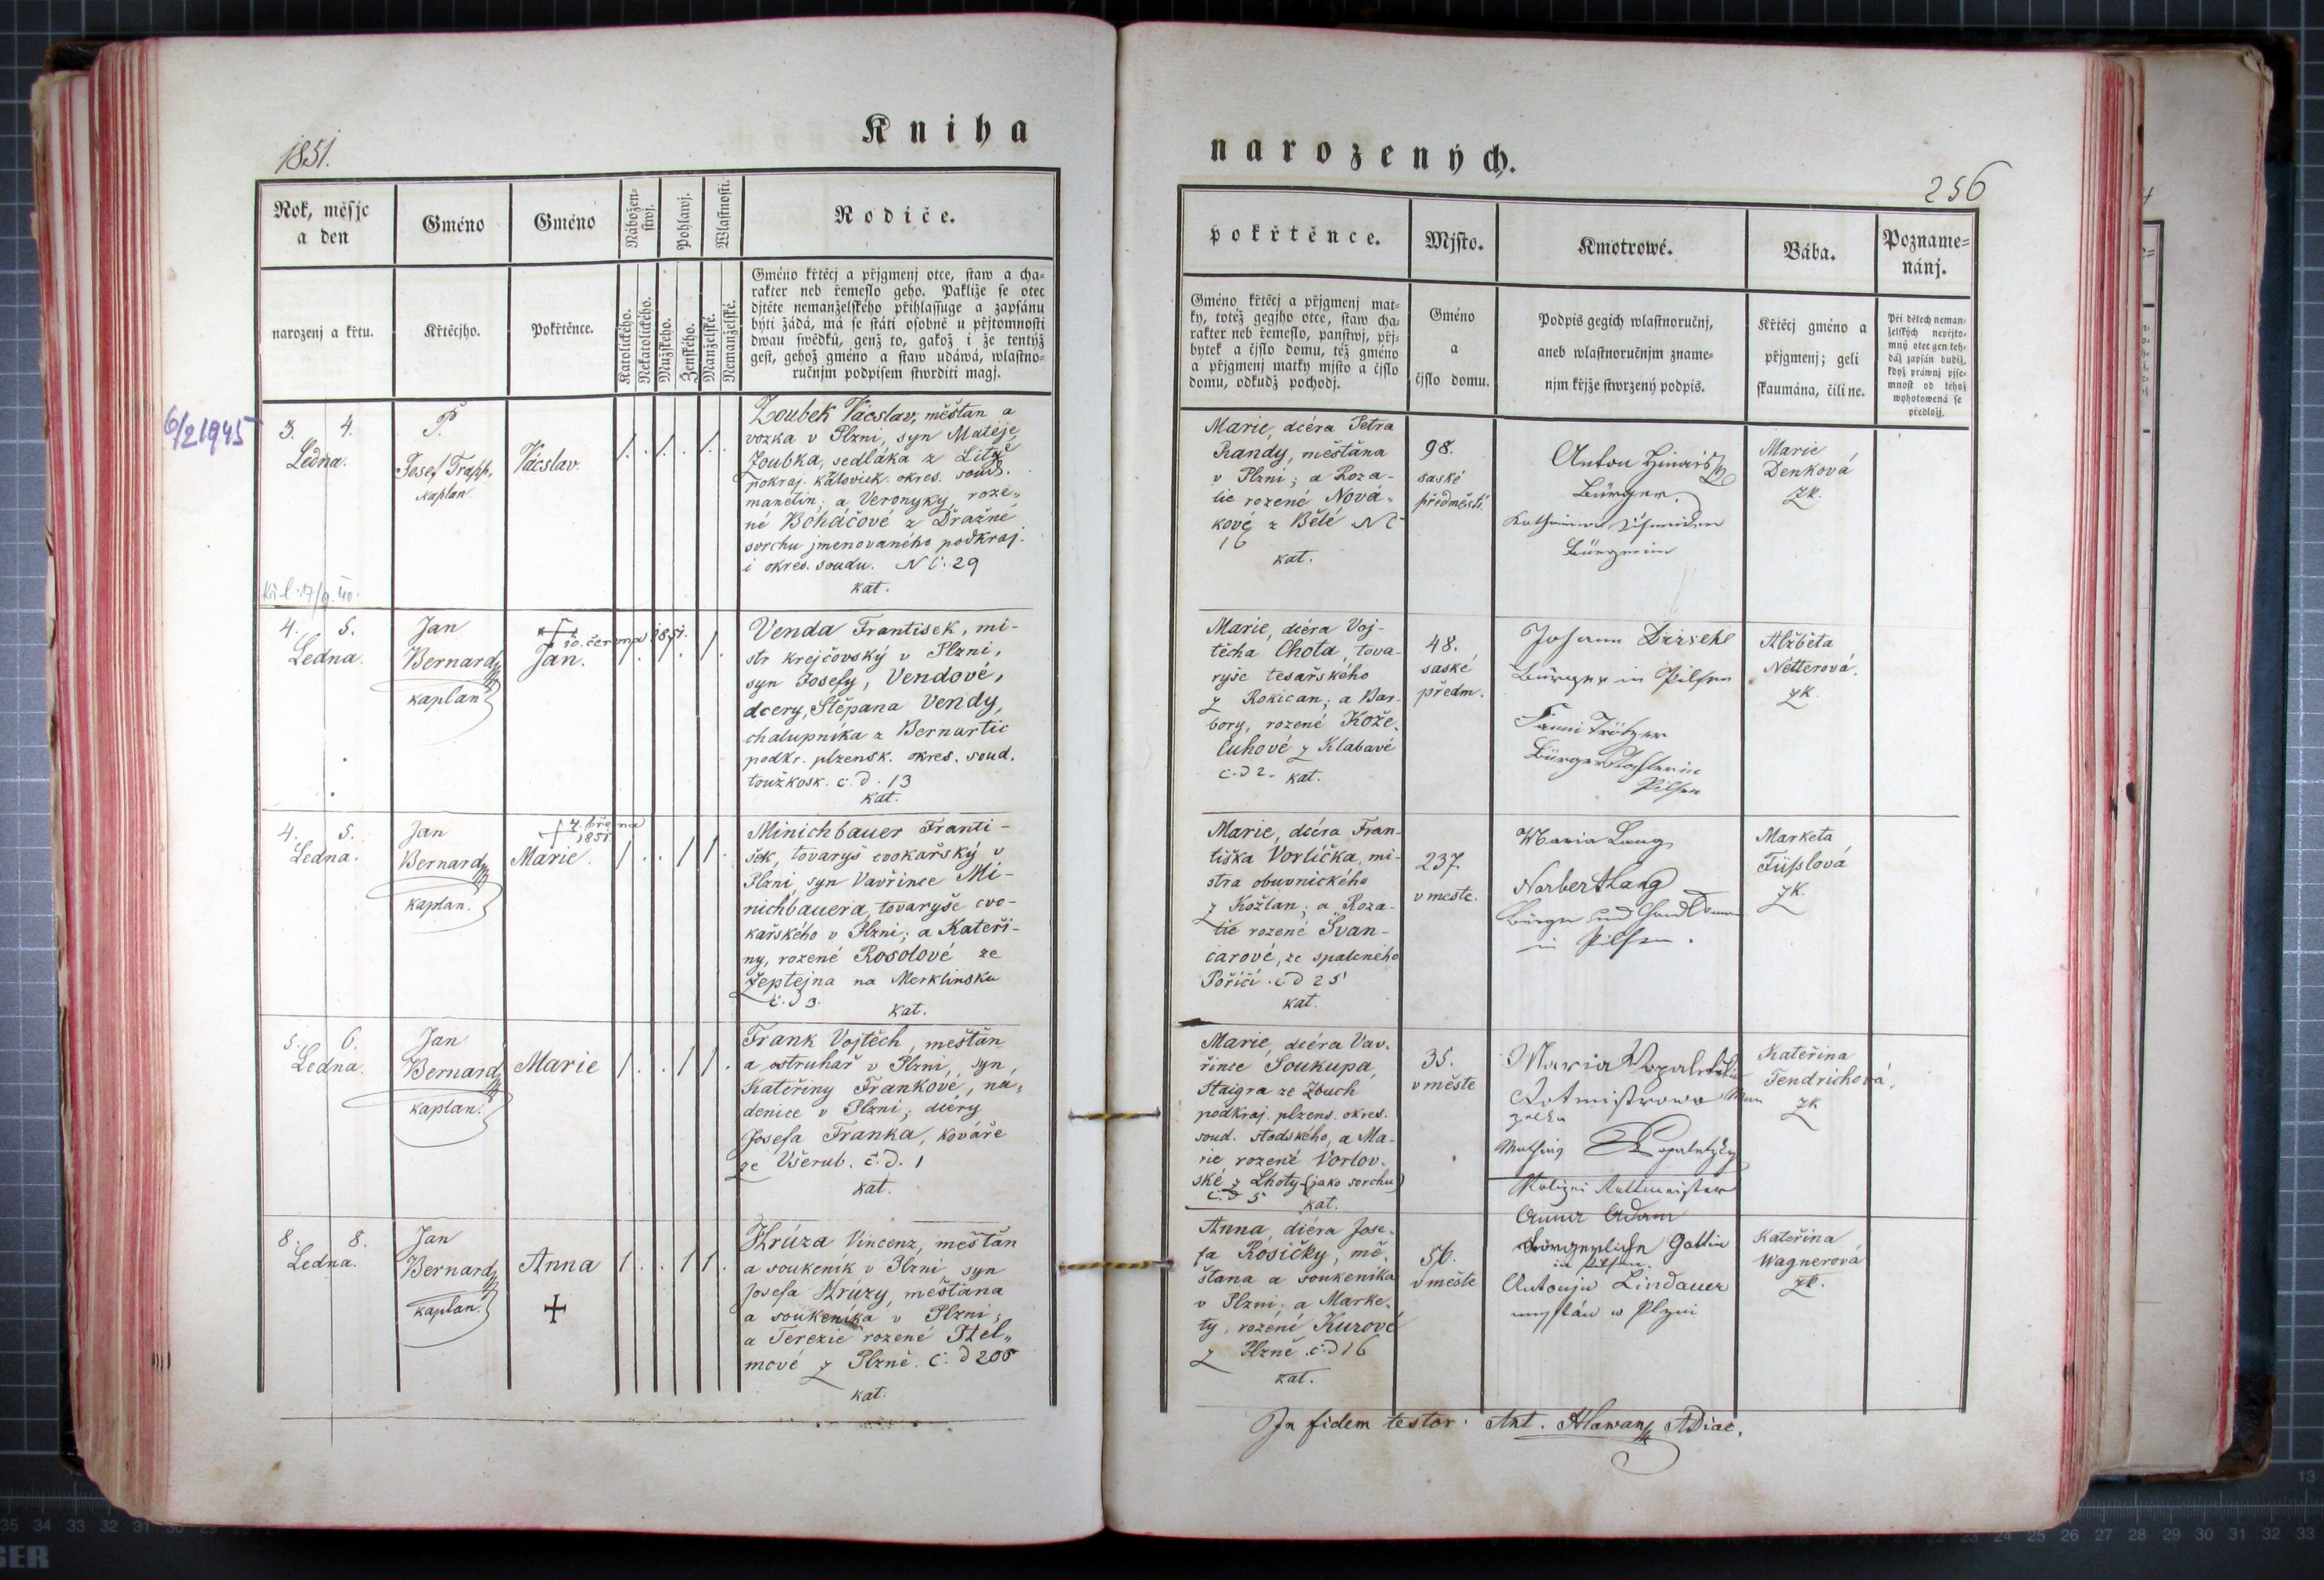 Kniha
narozených.
1851.
256
Rok, měsjc
a den
Gméno
Gméno
Nábožen-
stwj.
Pohlawj.
Wlastnosti.
Rodiče.
narozenj a křtu.
Křtěcjho.
Pokřtěnce.
Katolického.
Nekatolického.
Mužského.
Ženského.
Manželské.
Nemanželské.
Gméno křtěcj a přjgmenj otce, staw a cha-
rakter neb řemeslo geho. Pakliže se otec
djtěte nemanželského přihlassuge a zapsánu
býti žádá, má se státi osobně u přjtomnosti
dwau swědků, genž to, gakož i že tentýž
gest, gehož gméno a staw udáwá, wlastno-
ručnjm podpisem stwrditi magj.
pokřtěnce.
Mjsto.
Kmotrowé.
Bába.
Pozname-
nánj.
Gméno křtěcj a přjgmenj mat-
ky, totéž gegjho otce, staw cha-
rakter neb řemeslo, panstwj, přj-
bytek a čjslo domu, též gméno
a přjgmenj matky mjsto a čjslo
domu, odkudž pochodj.
Gméno
a
čjslo domu.
Podpis gegich wlastnoručnj,
aneb wlastnoručnjm zname-
njm křjže stwrzený podpis.
Křtěcj gméno a
přjgmenj; geli
skaumána, čili ne.
Při dětech neman-
želských nepřjto-
mný otec gen teh-
dáž zapsán budiž,
když práwnj pjse-
mnost od téhož
wyhotowená se
předložj.
6/2 1945
3. 4.
Ledna.
P.
Josef Trapp,
kaplan.
Vácslav.
1. . 1. . 1.
Zoubek Vácslav, měštan a
vozka v Plzni, syn Matěje
Zoubka, sedláka z Litýě
pokraj. kralovick. okres. soud.
manětin; a Veronyky, roze„
né Boháčové z Dražné
svrchu jmenovaného podkraj.
i okres. soudu. N č. 29
kat.
Marie, dcéra Petra
Randy, měšťana
v Plzni; a Roza-
lie rozené Nová„
kové z Bělé N č
16
kat.
98.
saské
předměstí.
Anton
Bürger.
Bürgerin
Marie
Denková
zk.
4. 5.
Ledna.
Jan
Bernard
kaplan
10. června 1851.
Jan.
1. . 1. . 1.
Venda Frantisek, mi-
str krejčovský v Plzni,
syn Josefy, Vendové,
dcery, Štěpana Vendy,
chalupníka z Bernartic
podkr. plzensk. okres. soud.
toužkosk. č. d. 13
kat.
Marie, dcéra Voj-
těcha Chota, tova-
ryše tesařského
z Rokican; a Bar-
bory, rozené Kože„
luhové z Klabavé
č. d 2. kat.
48.
saské
předm.
Johann
Bürger in Pilsen
Fanni
Pilsen
Alžběta
Netterová.
zk.
4. 5.
Ledna.
Jan
Bernard
kaplan.
7. března
1851.
Marie.
1 . . 1 1 .
Minichbauer Franti-
šek, tovaryš cvokařský v
Plzni, syn Vavřince Mi-
nichbauera, tovaryše cvo-
kařského v Plzni; a Kateři-
ny, rozené Rosolové ze
Zeptejna na Merklinsku
č. d 3.
kat.
Marie, dcéra Fran-
tiška Vorlíčka, mi-
stra obuvnického
z Kožlan; a Roza-
lie rozené Švan-
carové, ze spaleného
Poříčí. č d 25
kat.
237.
v meste.
Maria Lang
Norbert Lang
Bürger und Handelsmann
in Pilsen.
Marketa
Füßlová
zk.
5. 6.
Ledna.
Jan
Bernard
kaplan.
Marie
1 . . 1 1 .
Frank Vojtěch, meštan
a ostruhař v Plzni, syn,
Kateřiny Frankové, ná„
denice v Plzni; dcéry
Josefa Franka, kováře
ze Všerub. č. d. 1
kat.
Marie, dcéra Vav„
řince Soukupa,
štaigra ze Zbuch
podkraj. plzens. okres.
soud. stodského, a Ma-
rie rozené Vorlov„
ské z Lhoty (jako svrchu)
č. d 5 kat.
35.
v městě
Maria
Rotmistrowa
Mathias
Polizei Rottmeister
Kateřina
Tendrichová.
zk
8. 8.
Ledna.
Jan
Bernard
kaplan.
Anna
1 . . 1 1 .
Hrúza Vincenz, meštan
a soukeník v Plzni syn
Josefa Hrúzy, měštana
a soukeníka v Plzni;
a Terezie rozené Stel„
mové z Plzně. č. d 206
kat.
Anna, dcéra Jose„
fa Rosičky, mě„
štana a soukeníka
v Plzni; a Marke„
ty, rozené Kurové
z Plzně. č. d 16
kat.
56.
v městě
Anna Adam
bürgerliche Gattin
in Pilsen.
Antonju Lindauer
w Plzni
Kateřina
Wagnerová
zk.
In fidem testor: Ant. Hlawan ADiac.